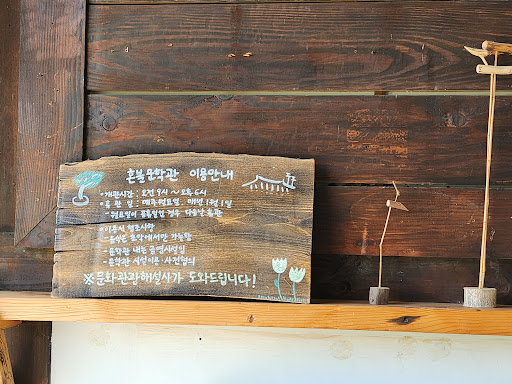 혼불문학관 이용안내
·개관시간 : 오전 9시 ~ 오후 6시
·휴관일 : 매주 월요일, 매년 1월 1일
·월요일이 공휴일인 경우 다음날 휴관
·이용시 협조사항
-음식은 호박에서만 가능함
-문학관 내는 금연시설임
-문학관 시설이용·사전협의
※문화관광해설사가 도와드립니다!